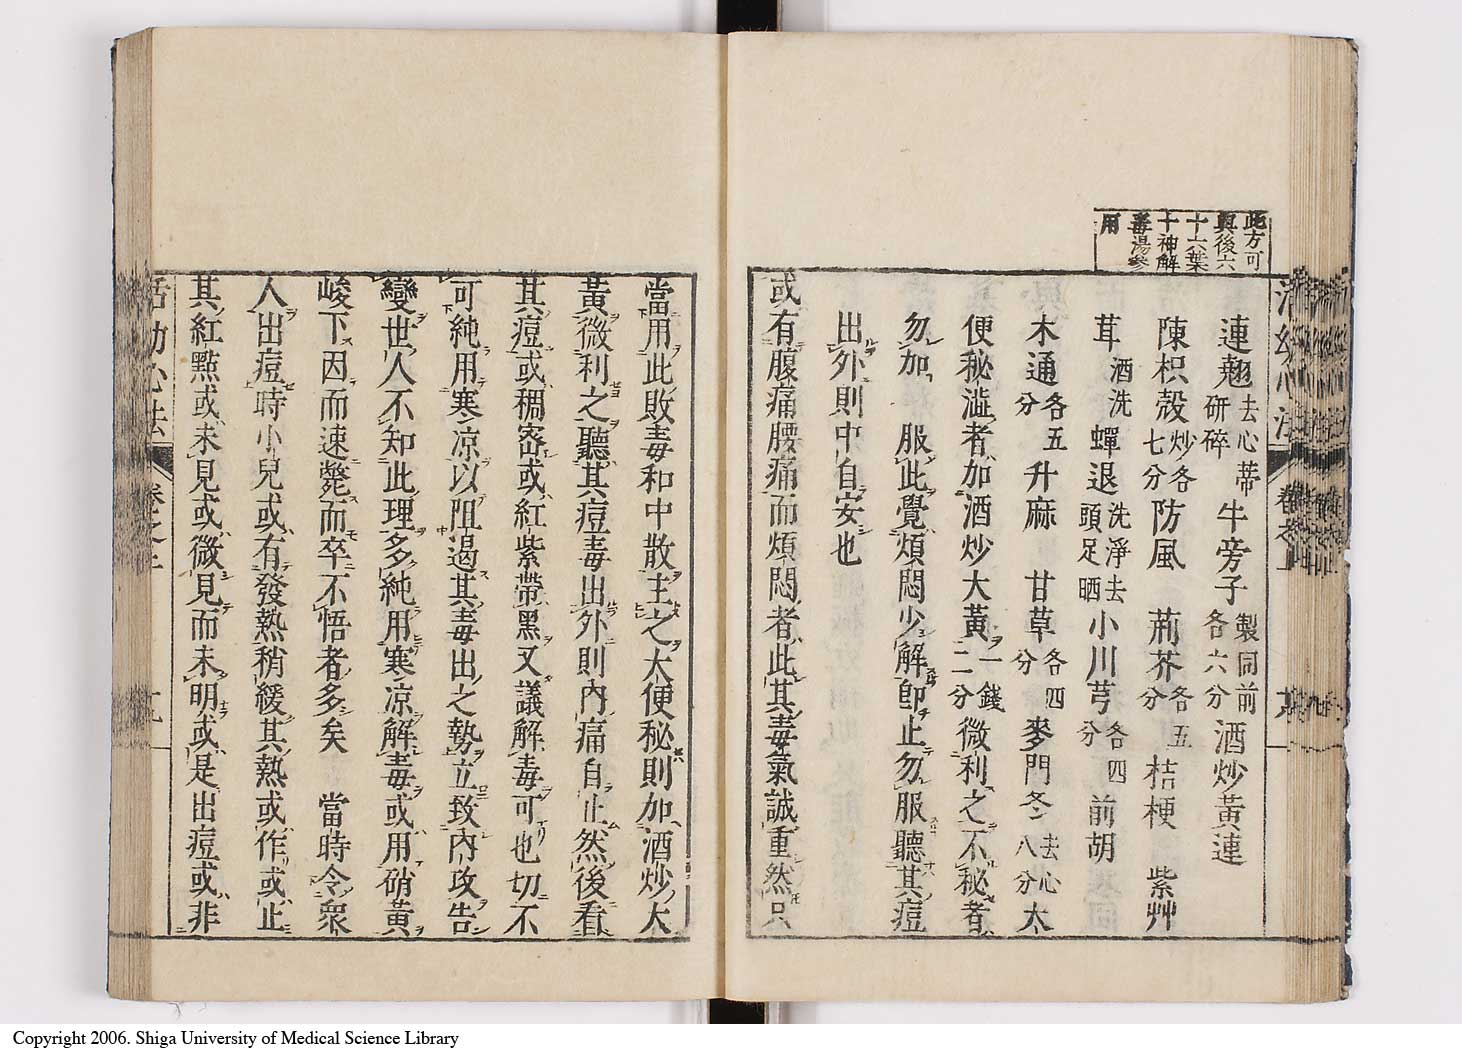 此方可
與後六
十六葉
十神解
毒湯參
用
連翹去心蒂研碎牛旁子製同前各六分酒炒黃連
陳枳殼炒各七分防風荊芥各五分桔梗紫艸
茸酒洗蟬退洗淨去頭足晒小川芎各四分前胡
木通各五分升麻甘草各四分麥門冬去心八分大
便秘澁者加酒炒大黃一錢二分微利之不秘者
勿加服此覺煩悶少解卽止勿服聽其痘
出外則中自安也
或有腹痛腰痛而煩悶者此其毒氣誠重然只
當用此敗毒和中散主之大便秘則加酒炒大
黃微利之聽其痘毒出外則內痛自止然後看
其痘或稠密或紅紫帶黑又議解毒可也切不
可純用寒凉以阻遏其毒出之勢立致內攻告
變世人不知此理多純用寒凉解毒或用硝黃
峻下因而速斃而卒不悟者多矣當時令衆
人出痘時小兒或有發熱稍緩其熱或作或止
其紅㸃或未見或微見而未明或是出痘或非
活幼心法
卷之
Copyright 2006. Shiga University of Medical Science Library